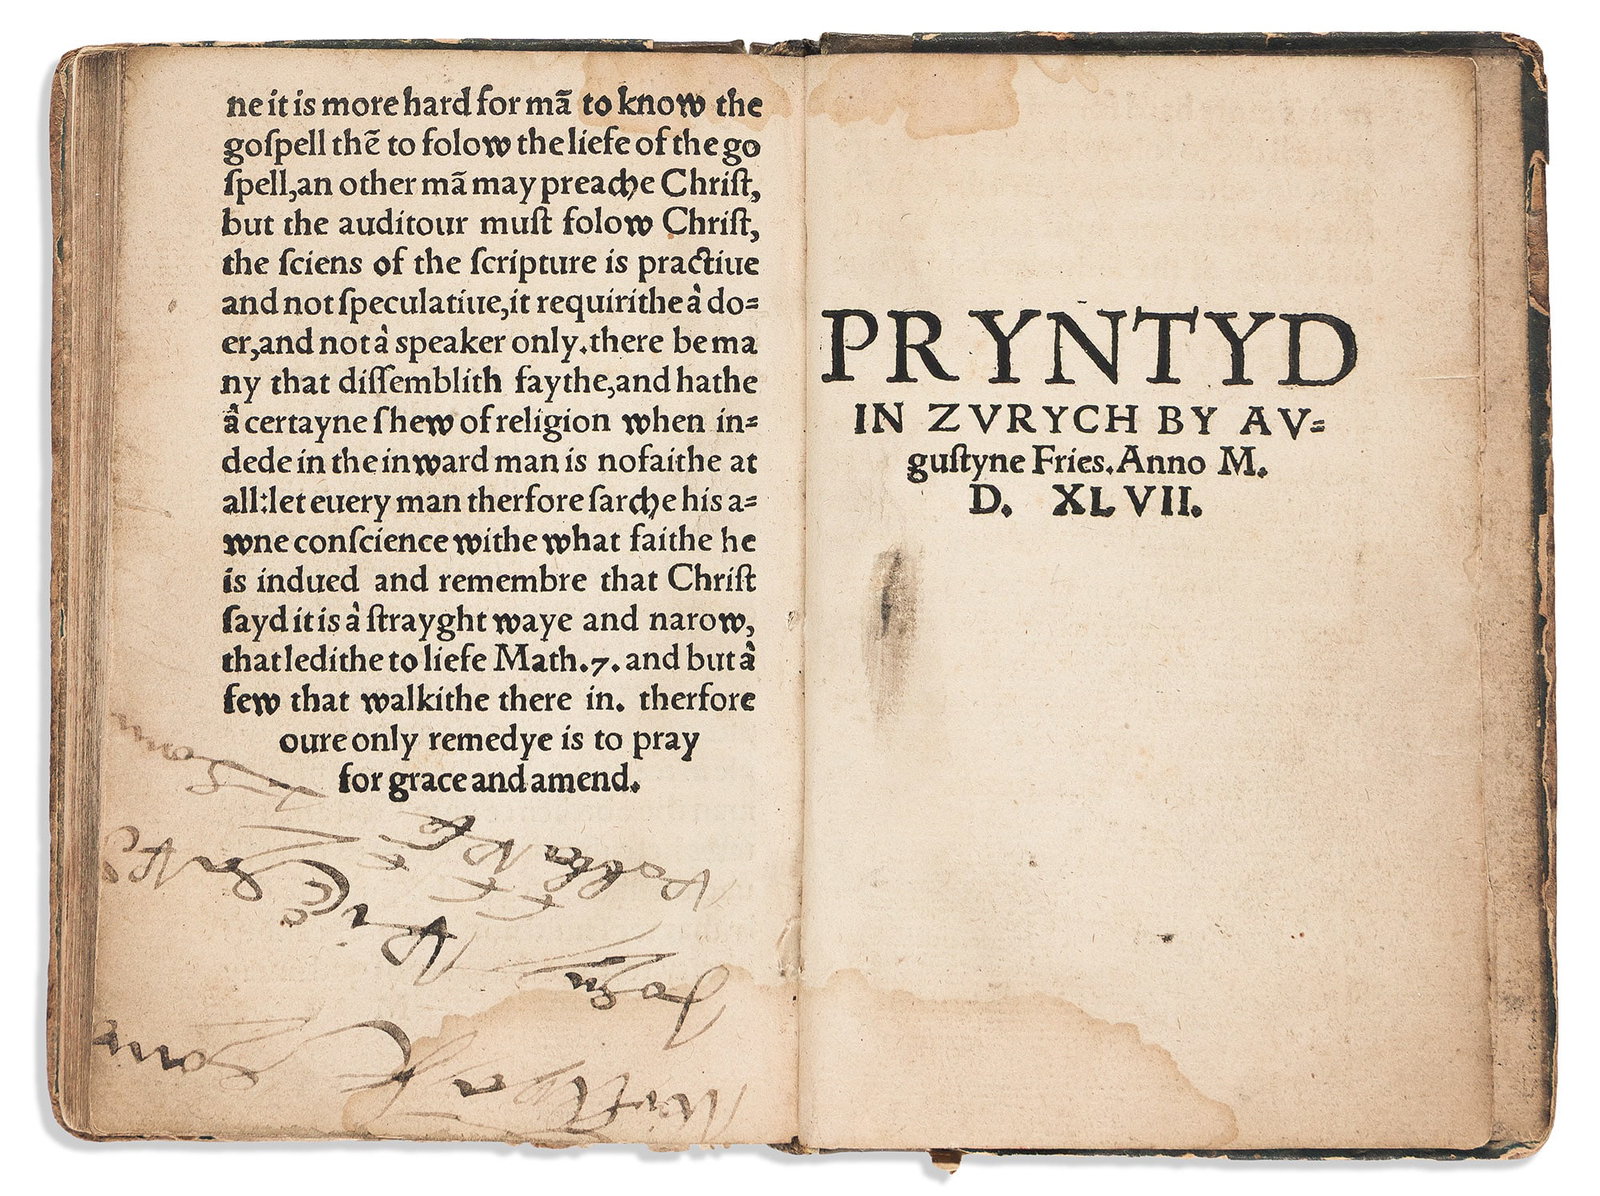 ne it is more hard for mã to know the
goſpell thẽ to folow the liefe of the go
ſpell,an other mã may preache Chriſt,
but the auditour muſt folow Chriſt,
the ſciens of the ſcripture is practiue
and not ſpeculatiue,it requirithe à do=
er,and not à speaker only.there be ma
ny that diſſemblith faythe,and hathe
à certayne ſhew of religion when in=
dede in the inward man is no faithe at
all:let euery man therfore ſarche his a=
wne conſcience withe what faithe he
is indued and remembre that Chriſt
ſayd it is à ſtrayght waye and narow,
that ledithe to liefe Math.7. and but à
few that walkithe there in. therfore
oure only remedye is to pray
for grace and amend.
PRYNTYD
IN ZVRYCH BY AV=
guſtyne Fries.Anno M.
D. XLVII.